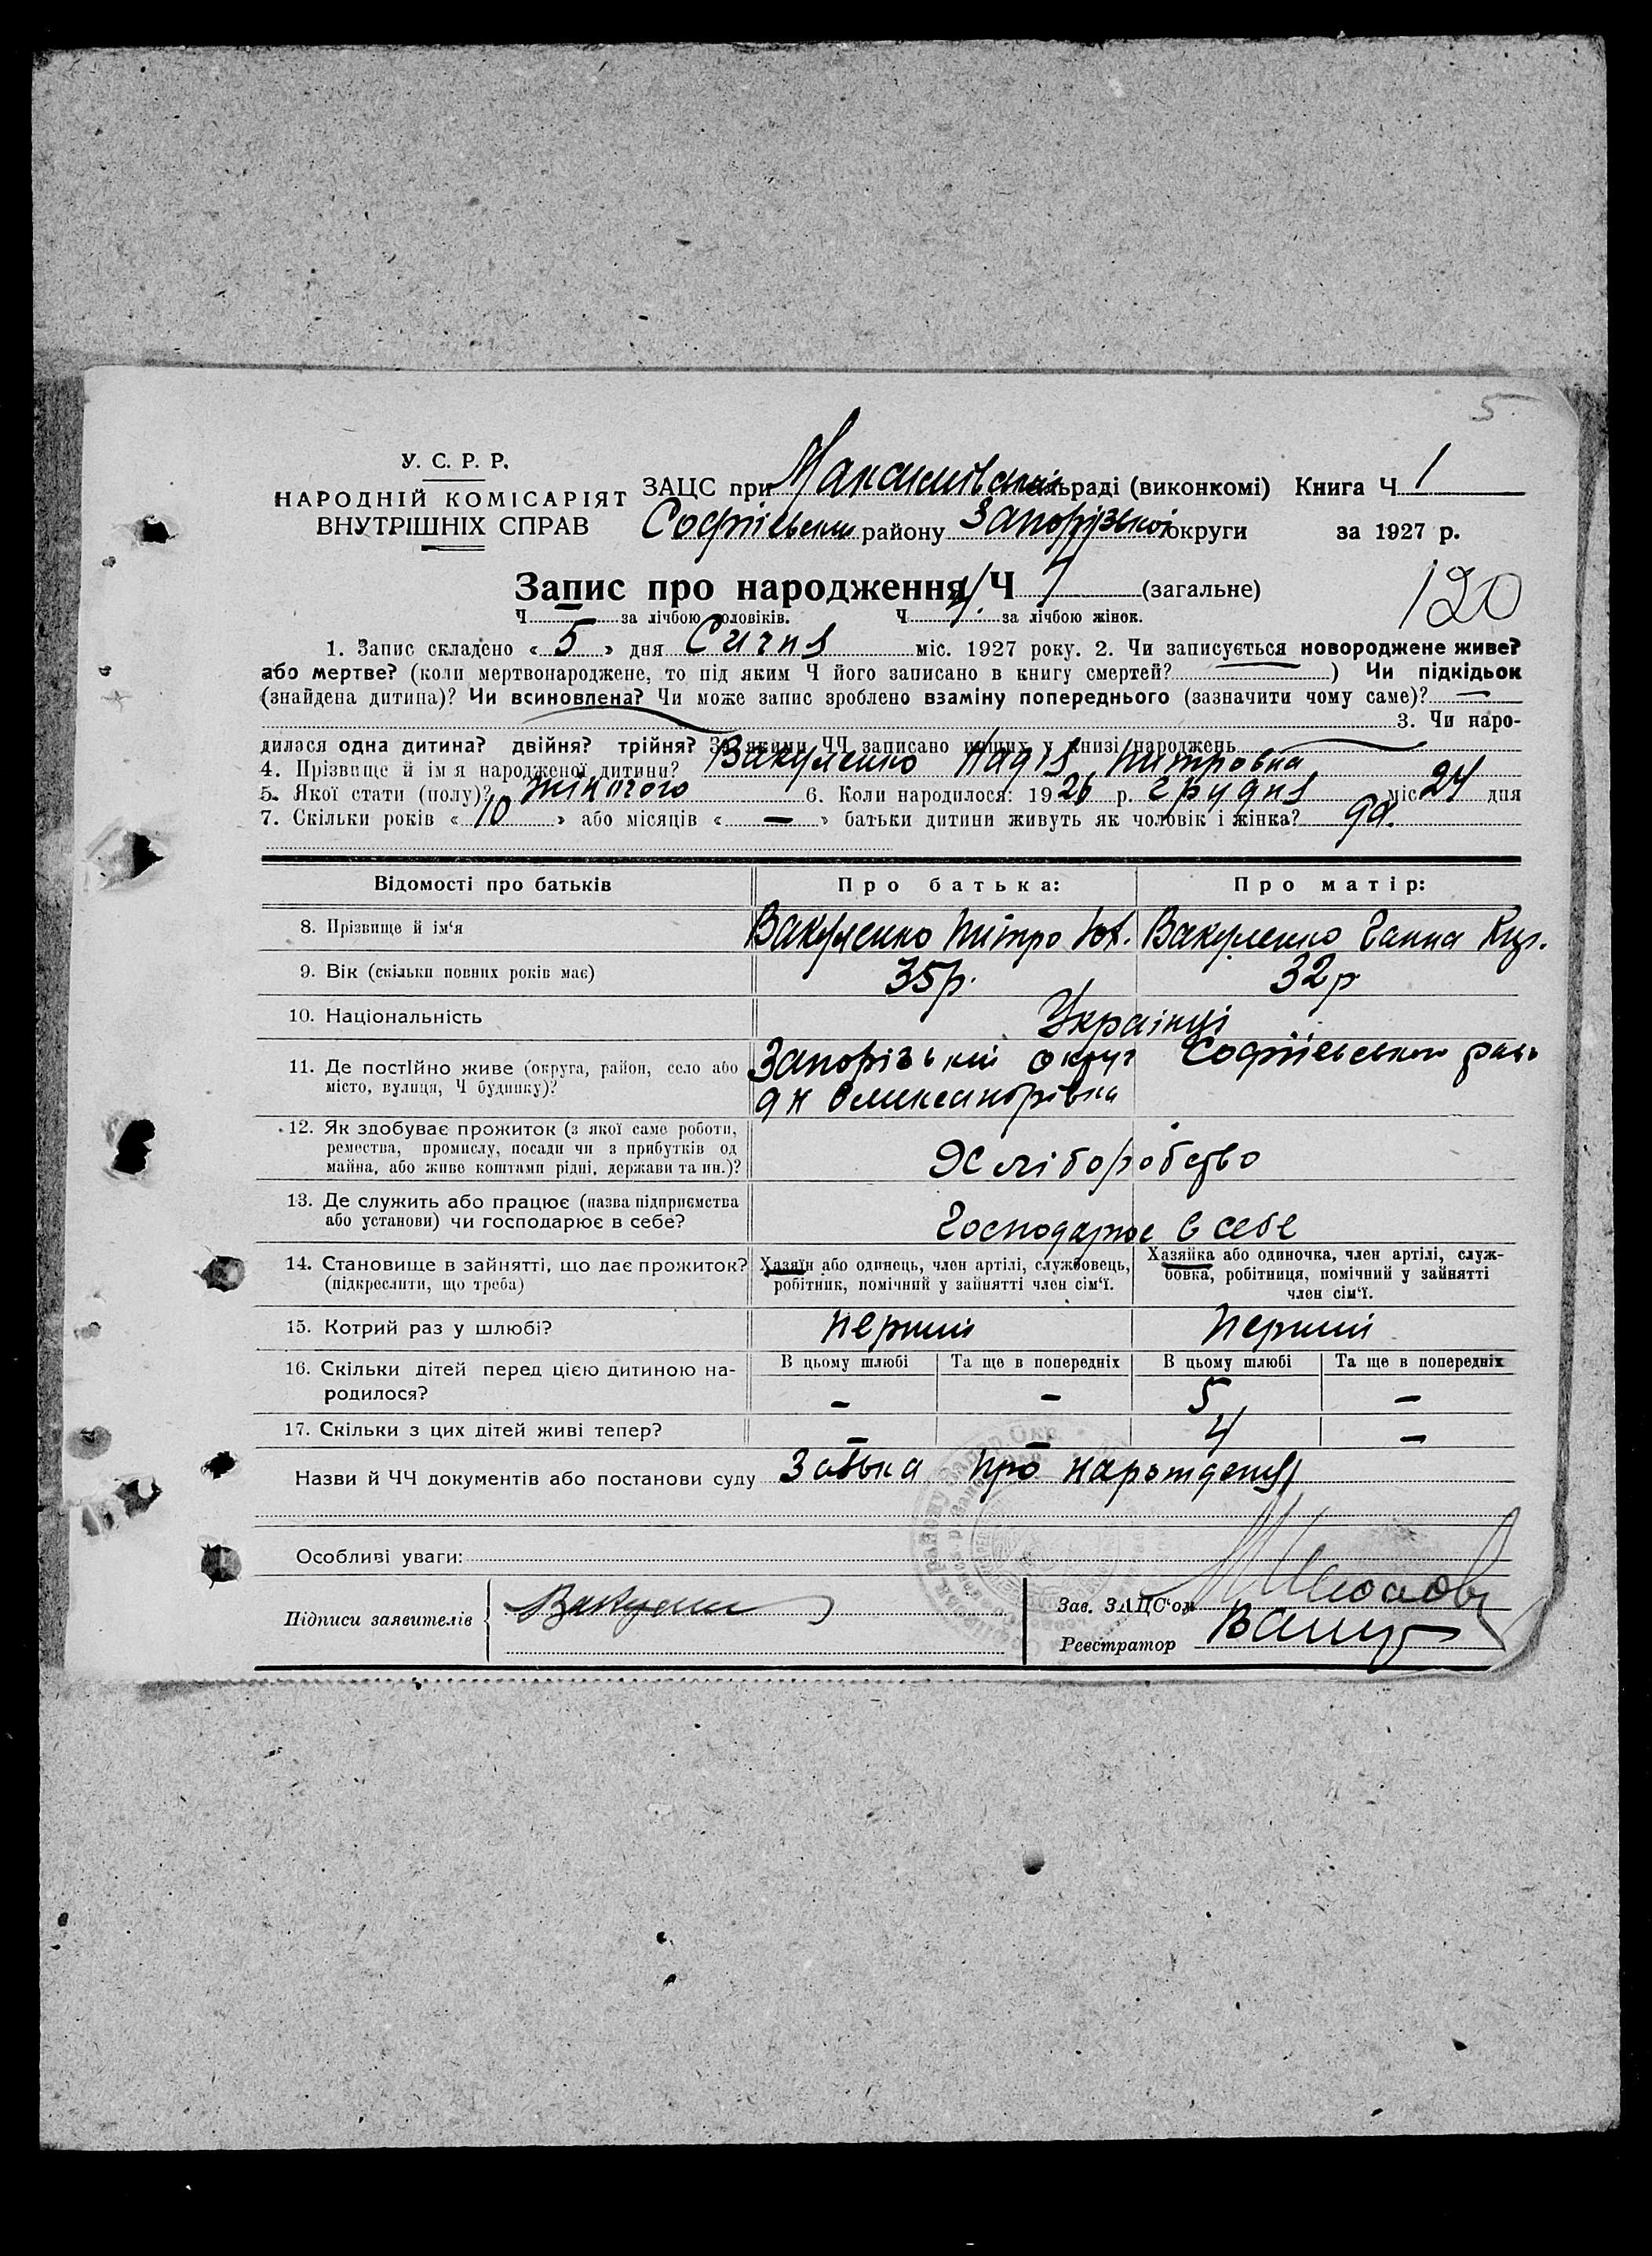 5
У. С. Р. Р.
НАРОДНІЙ КОМІСАРІЯТ
ВНУТРІШНІХ СПРАВ
ЗАЦС при сільраді (виконкомі) Книга Ч 1
Софіївськ району Запорізької округи за 1927 р.
Запис про народження Ч 7 (загальне)
120
Ч — за лічбою чоловіків. Ч 4 за лічбою жінок.
1. Запис складено « 5 » дня Січня міс. 1927 року. 2. Чи записується новороджене живе?
або мертве? (коли мертвонароджене, то під яким Ч його записано в книгу смертей? ) Чи підкідьок
(знайдена дитина)? Чи всиновлена? Чи може запис зроблено взаміну попереднього (зазначити чому саме)? —
3. Чи наро-
дилася одна дитина? двійня? трійня? За якими ЧЧ записано инших у книзі народжень
4. Прізвище й ім'я народженої дитини? Вакуленко Надія Питровна
5. Якої стати (полу)? жіночого 6. Коли народилося: 1926 р. грудня міс 24 дня
7. Скільки років « 10 » або місяців « — » батьки дитини живуть як чоловік і жінка?
Відомості про батьків Про батька: Про матір:
8. Прізвище й ім'я Вакуленко Питро Вакуленко Ганна
9. Вік (скільки повних років має) 35 р. 32 р
10. Національність Українці
11. Де постійно живе (округа, район, село або Запорізький округ Софіевського
місто, вулиця, Ч будинку)? Олександрівка
12. Як здобуває прожиток (з якої саме роботи,
ремества, промислу, посади чи з прибутків од
майна, або живе коштами рідні, держави та ин.)? Хліборобство
13. Де служить або працює (назва підприємства
або установи) чи господарює в себе? Господарює в себе
14. Становище в зайнятті, що дає прожиток?
(підкреслити, що треба)
Хазяїн або одинець, член артілі, службовець,
робітник, помічний у зайнятті член сім'ї.
Хазяйка або одиночка, член артілі, служ-
бовка, робітниця, помічний у зайнятті
член сім'ї.
15. Котрий раз у шлюбі? Перший Перший
16. Скільки дітей перед цією дитиною на-
родилося?
В цьому шлюбі Та ще в попередніх В цьому шлюбі Та ще в попередніх
— — 5 —
17. Скільки з цих дітей живі тепер? — — 4 —
Назви й ЧЧ документів або постанови суду Заявка про
Особливі уваги:
Підписи заявителів
Зав. ЗАЦС'ом
Реєстратор